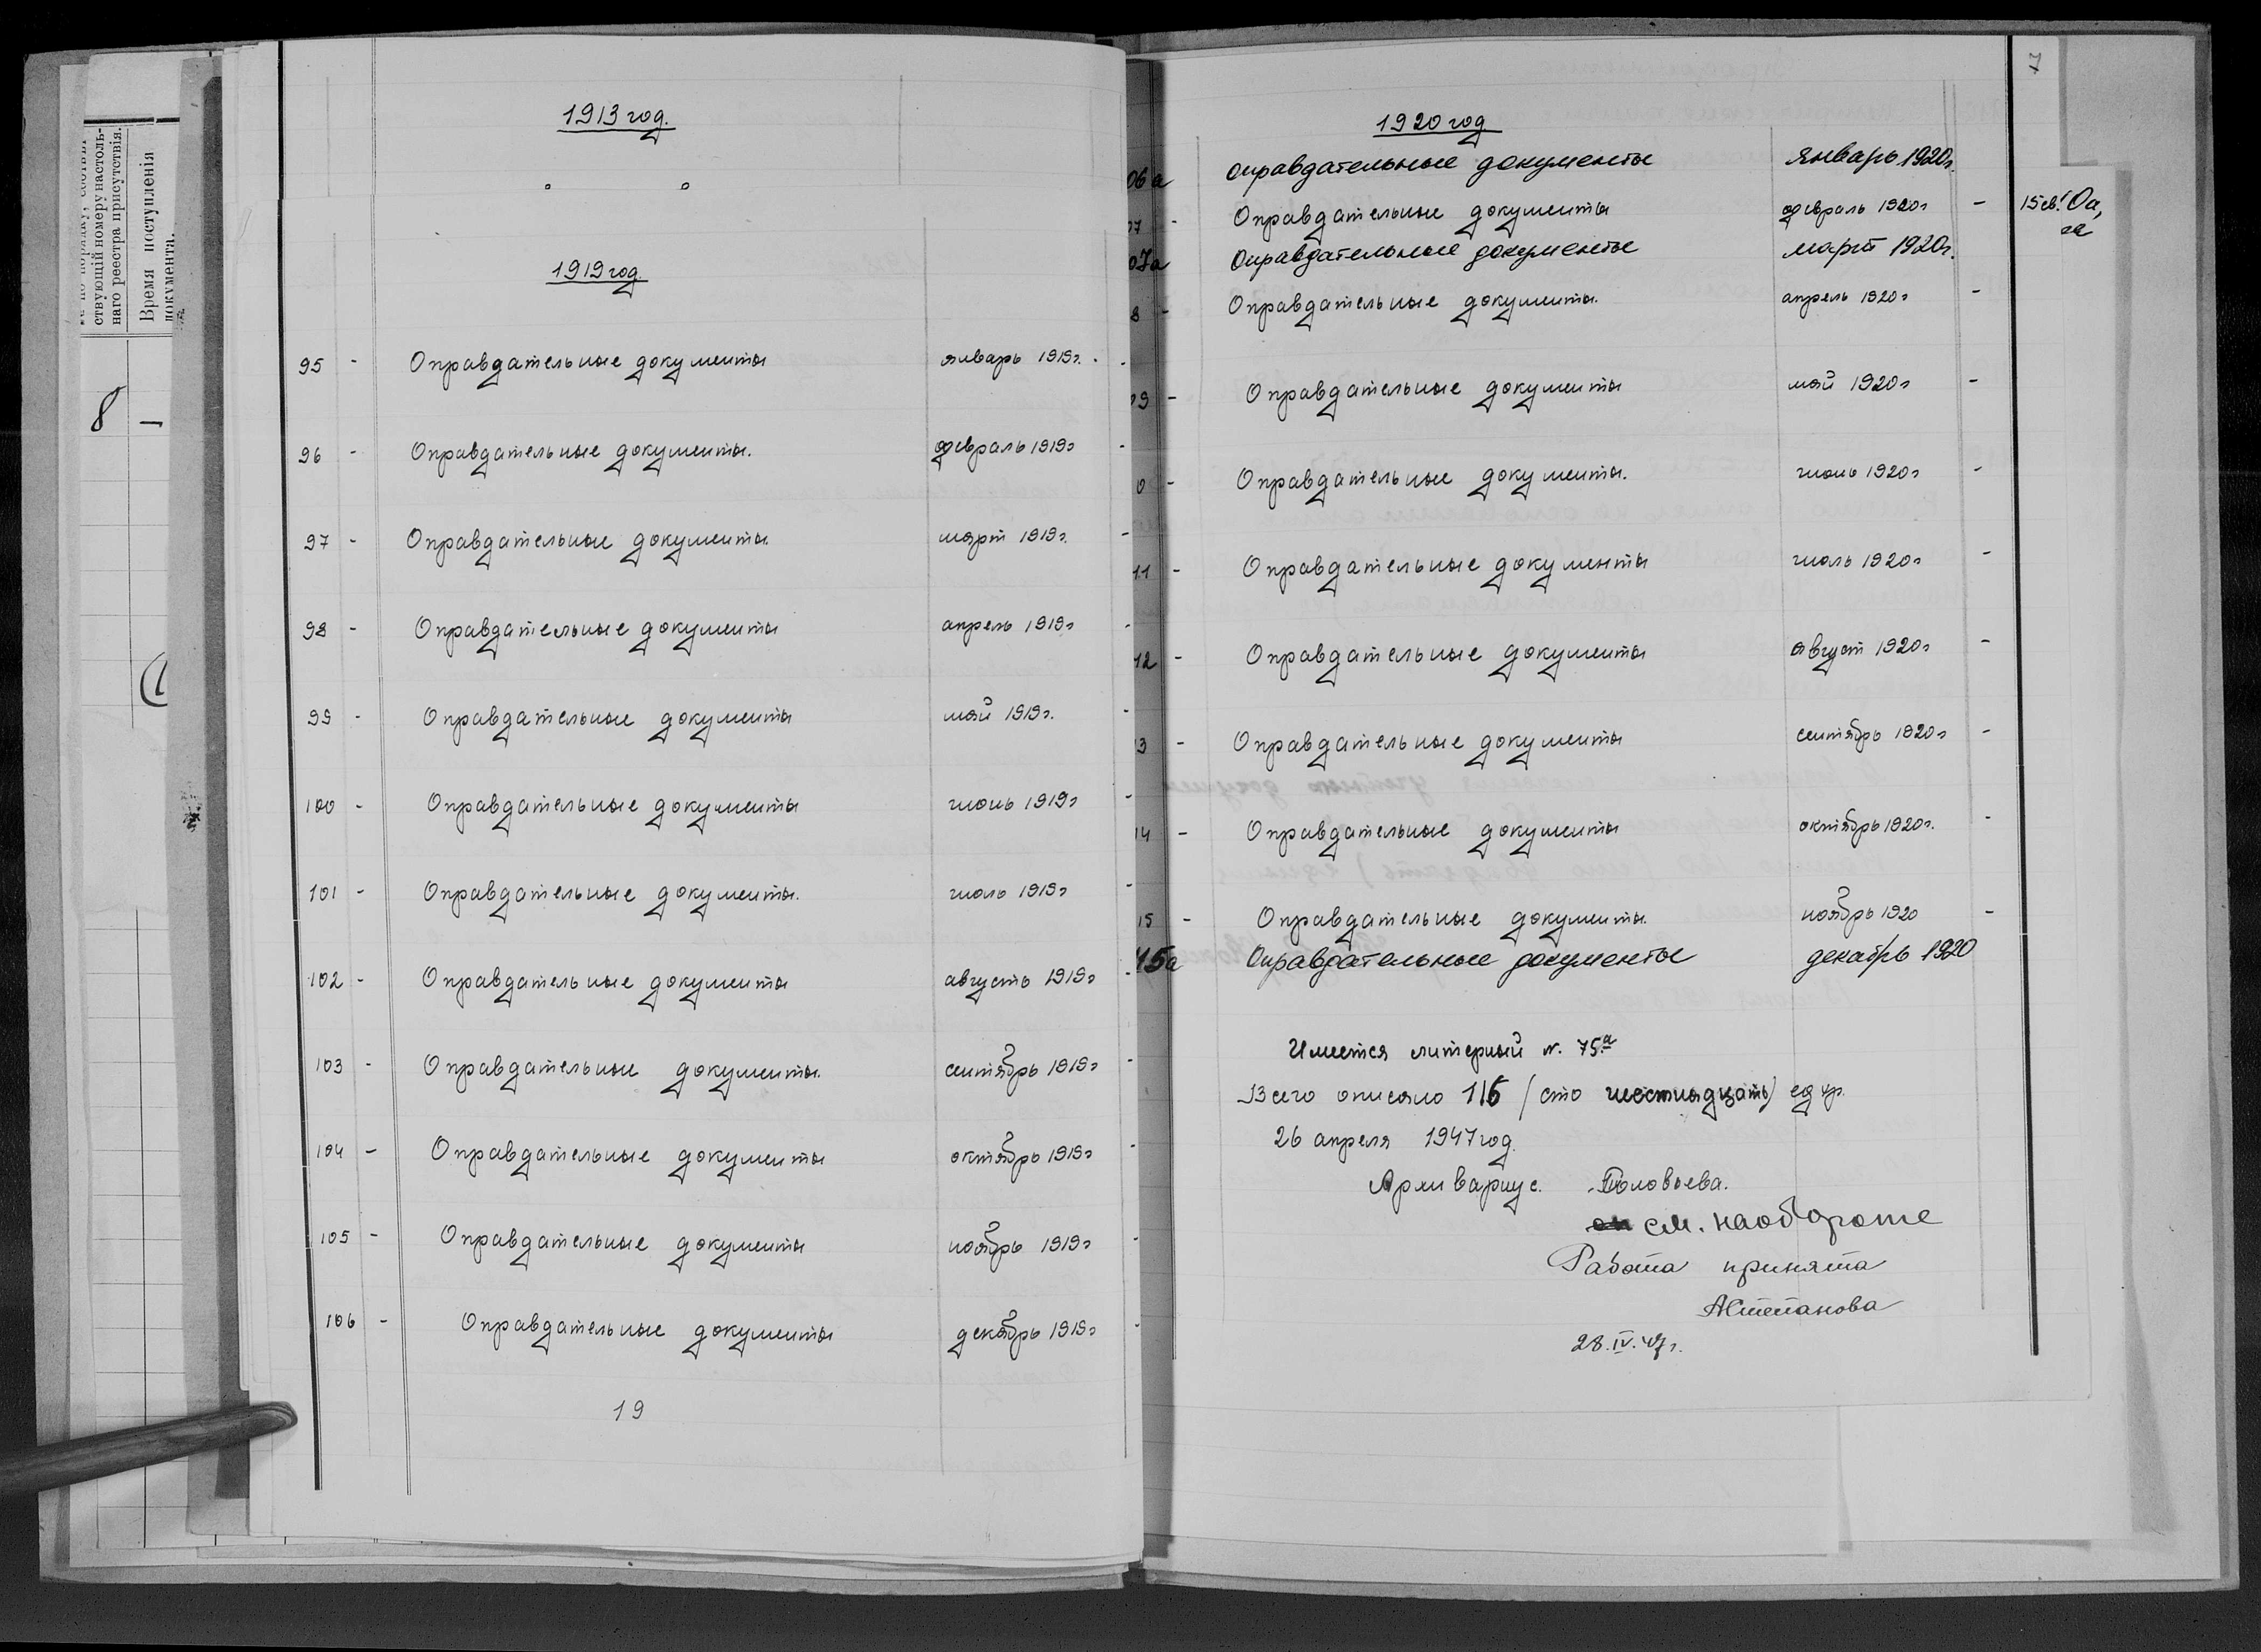 ствующій номеру настоль-
наго реестра присутствія.
Время поступленія
документа.
8 -
1913 год.
1919 год.
95 - Оправдательные документы январь 1919г. -
96 - Оправдательные документы. февраль 1919г -
97 - Оправдательные документы. март 1919г. -
98 - Оправдательные документы апрель 1919г -
99 - Оправдательные документы май 1919г. -
100 - Оправдательные документы июнь 1919г -
101 - Оправдательные документы. июль 1919г -
102 - Оправдательные документы августъ 1919г -
103 - Оправдательные документы. сентябрь 1919г -
104 - Оправдательные документы октябрь 1919г -
105 - Оправдательные документы ноябрь 1919г -
106 - Оправдательные документы декабрь 1919г -
19
7
1920 год
06а Оправдательные документы январь 1920г.
07 - Оправдательные документы февраль 1920г -
07а Оправдательные документы март 1920г.
8 - Оправдательные документы. апрель 1920г -
09 - Оправдательные документы май 1920г -
0 - Оправдательные документы. июнь 1920г -
11 - Оправдательные документы июль 1920г -
12 - Оправдательные документы август 1920г -
13 - Оправдательные документы сентябрь 1920г -
14 - Оправдательные документы октябрь 1920г. -
15 - Оправдательные документы. ноябрь 1920 -
15а Оправдательные документы декабрь 1920
Имеется литерный N. 75а
Всего описано 116 (сто шестнадцать) ед хр.
26 апреля 1947 год.
Архивариус. Соловьева.
см. на обороте
Работа принята
АСтепанова
28.IV.47г.